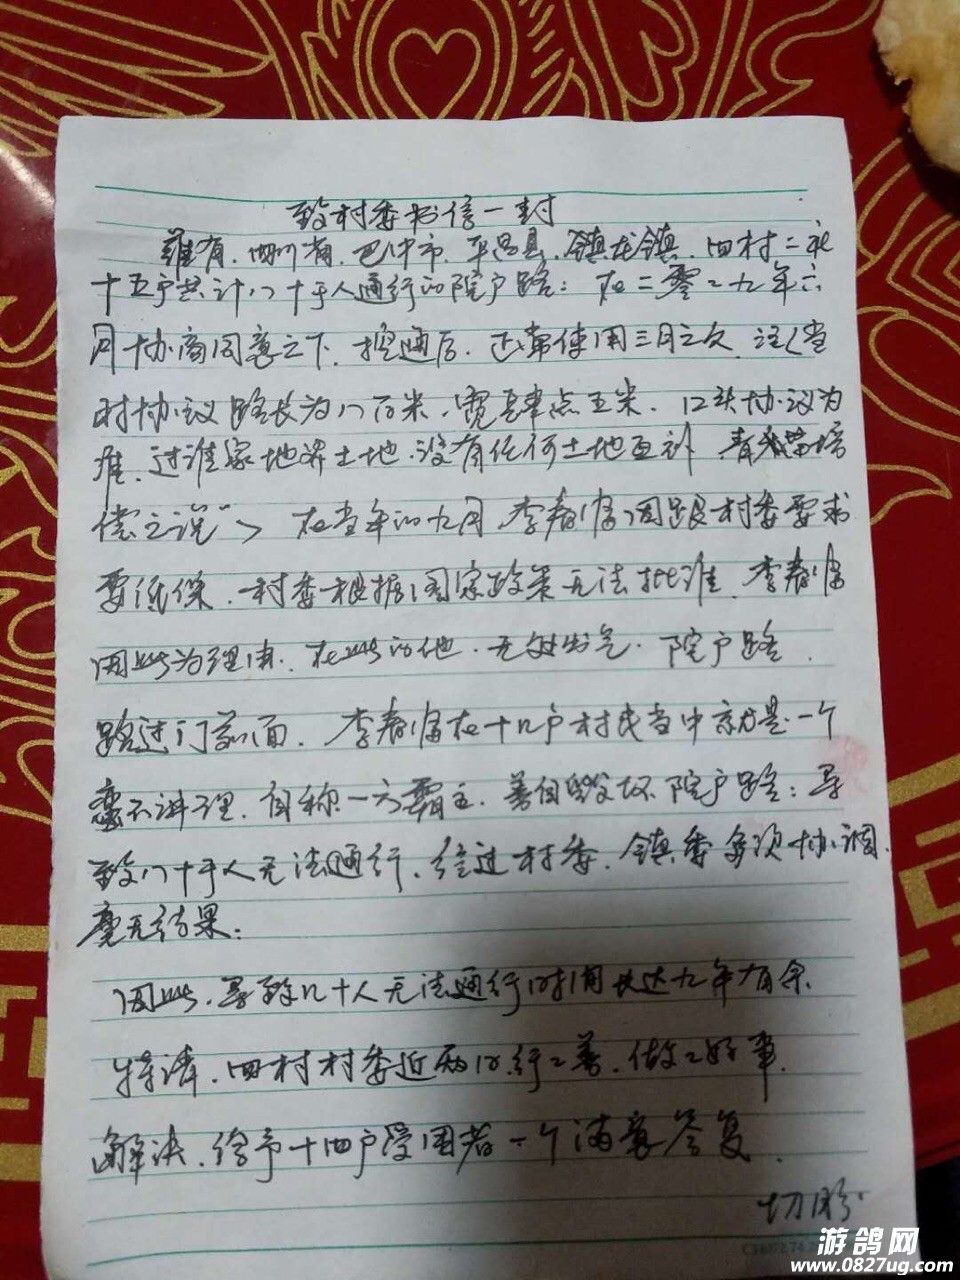 致村委书信一封
兹有.四川省.巴中市.平昌县.镇龙镇.四村二社
十五户共计八十于人通行的院户路：在二零一九年六
月十协商同意之下.挖通后.正常使用三月之久.注<当
时协议路长为八百米.宽肆点五米.口头协议为
准.过谁家地界土地.没有任何土地互补.青苗赔
偿之说"> 在当年的九月.李春 因跟村委要求
要低保.村委根据国家政策无法批准.李春
因此为理由.在此的他.无处出气.院户路
路过门前面.李春 在十几户村民当中就是一个
蛮不讲理.自称一方霸主.善自毁坏院户路：导
致八十于人无法通行.经过村委.镇委多次协调.
毫无结果：
因此.导致几十人无法通行时间长达九年有余.
特请.四村村委近两日.行行善.做做好事.
解决.给予十四户受困者一个满意答复.
切盼
游鸽网
www.0827ug.com